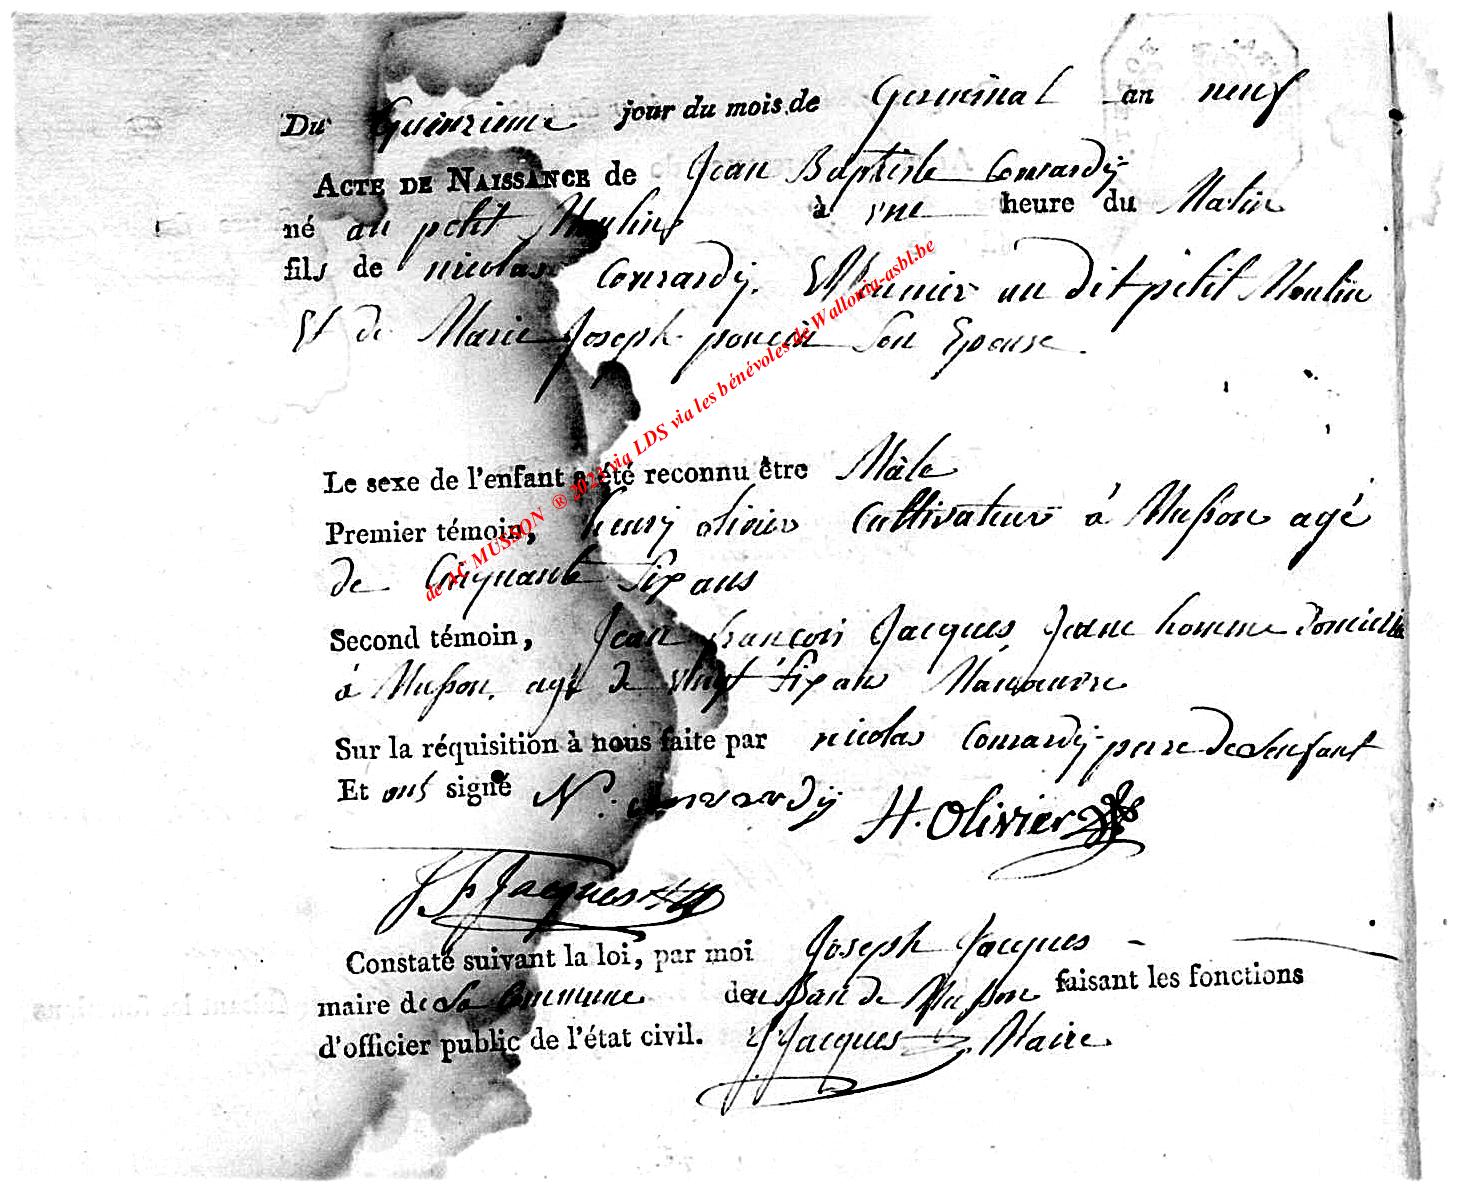 Du Quinzieme jour du mois de Germinal an neuf
ACTE DE NAISSANCE de Jean Baptiste Conrardÿ
né au petit Moulin à une heure du Matin
fils de nicolas Conrardÿ, Meunier au dit petit Moulin
Et de Marie Joseph poncin Son Epouse
Le sexe de l'enfant a été reconnu être Mâle
Premier témoin, henry olivier Cultivateur à Musson agé
de Cinquante Six ans
Second témoin, Jean françois Jacques Jeune homme Domicilié
à Musson, agé de vingt Six ans Manœuvre
Sur la réquisition à nous faite par nicolas Conrardÿ pere de Lenfant
Et ont signé N. Conrardÿ H. Olivier
J F Jacques
Constaté suivant la loi, par moi Joseph Jacques
maire de La Commune de Ban de Musson faisant les fonctions
d'officier public de l'état civil. J Jacques, Maire
de AC MUSSON ® 2022 via LDS via les bénévoles de Wallonia-asbl.be